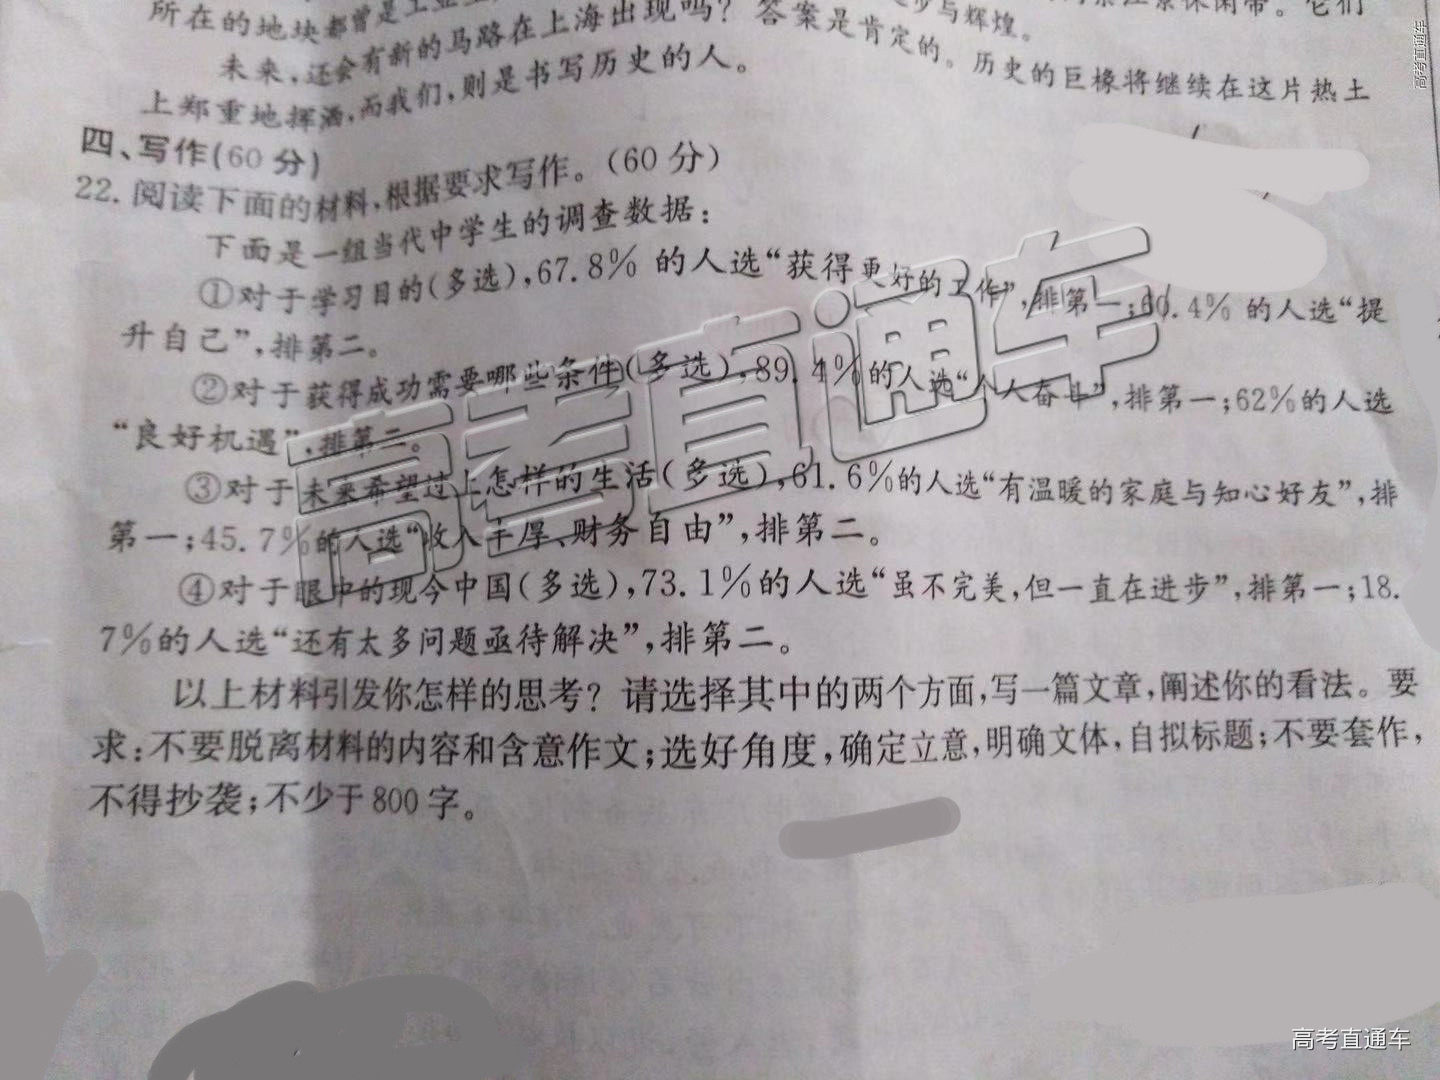 所在的地块都曾是工业
步与辉煌。
休闲带。它们
未来,还会有新的马路在上海出现吗?答案是肯定的。历史的巨椽将继续在这片热土
上郑重地挥洒,而我们,则是书写历史的人。
四、写作(60分)
22.阅读下面的材料,根据要求写作。(60分)
下面是一组当代中学生的调查数据:
①对于学习目的(多选),67.8%的人选“获得更好的工作”,排第一;60.4%的人选“提
升自己”,排第二。
②对于获得成功需要哪些条件(多选),89.4%的人选“个人奋斗”,排第一;62%的人选
“良好机遇”,排第二。
③对于未来希望过上怎样的生活(多选),61.6%的人选“有温暖的家庭与知心好友”,排
第一;45.7%的人选“收入丰厚、财务自由”,排第二。
④对于眼中的现今中国(多选),73.1%的人选“虽不完美,但一直在进步”,排第一;18.
7%的人选“还有太多问题亟待解决”,排第二。
以上材料引发你怎样的思考?请选择其中的两个方面,写一篇文章,阐述你的看法。要
求:不要脱离材料的内容和含意作文;选好角度,确定立意,明确文体,自拟标题;不要套作,
不得抄袭;不少于800字。
高考直通车
高考直通车
高考直通车